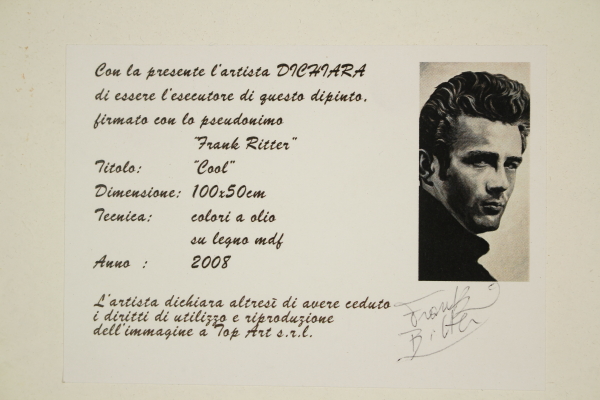 Con la presente l'artista DICHIARA
di essere l'esecutore di questo dipinto,
firmato con lo pseudonimo
"Frank Ritter"
Titolo: "Cool"
Dimensione: 100x50cm
Tecnica: colori a olio
su legno mdf
Anno : 2008
L'artista dichiara altresì di avere ceduto
i diritti di utilizzo e riproduzione
dell'immagine a Top Art s.r.l.
Frank
Ritter